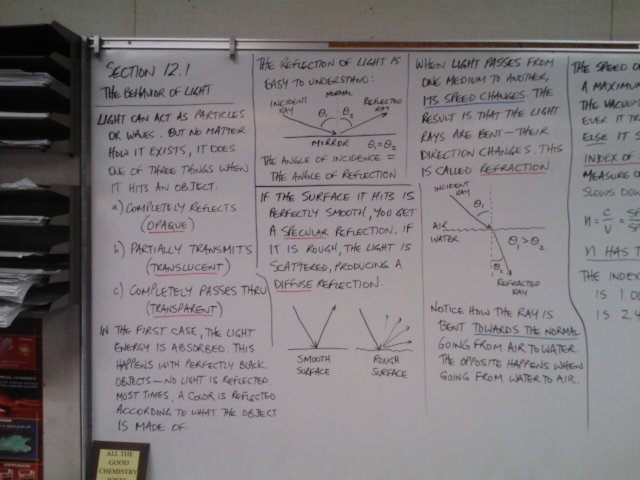 SECTION 12.1
THE BEHAVIOR OF LIGHT
LIGHT CAN ACT AS PARTICLES
OR WAVES. BUT NO MATTER
HOW IT EXISTS, IT DOES
ONE OF THREE THINGS WHEN
IT HITS AN OBJECT.
a) COMPLETELY REFLECTS
(OPAQUE)
b) PARTIALLY TRANSMITS
(TRANSLUCENT)
c) COMPLETELY PASSES THRU
(TRANSPARENT)
IN THE FIRST CASE, THE LIGHT
ENERGY IS ABSORBED. THIS
HAPPENS WITH PERFECTLY BLACK
OBJECTS – NO LIGHT IS REFLECTED.
MOST TIMES, A COLOR IS REFLECTED
ACCORDING TO WHAT THE OBJECT
IS MADE OF.
THE REFLECTION OF LIGHT IS
EASY TO UNDERSTAND:
NORMAL
INCIDENT RAY
REFLECTED RAY
θ1 θ2
MIRROR θ1 = θ2
THE ANGLE OF INCIDENCE =
THE ANGLE OF REFLECTION
IF THE SURFACE IT HITS IS
PERFECTLY SMOOTH, YOU GET
A SPECULAR REFLECTION. IF
IT IS ROUGH, THE LIGHT IS
SCATTERED, PRODUCING A
DIFFUSE REFLECTION.
SMOOTH SURFACE
ROUGH SURFACE
WHEN LIGHT PASSES FROM
ONE MEDIUM TO ANOTHER,
ITS SPEED CHANGES. THE
RESULT IS THAT THE LIGHT
RAYS ARE BENT – THEIR
DIRECTION CHANGES. THIS
IS CALLED REFRACTION.
INCIDENT RAY
θ1
AIR
WATER
θ1 > θ2
θ2
REFRACTED RAY
NOTICE HOW THE RAY IS
BENT TOWARDS THE NORMAL
GOING FROM AIR TO WATER.
THE OPPOSITE HAPPENS WHEN
GOING FROM WATER TO AIR.
THE SPEED O
A MAXIMU
THE VACUU
EVER IT TR
ELSE IT S
INDEX OF
MEASURE O
SLOWS DOW
n = C/V = SP/SP
n HAS T
THE INDEX
IS 1.0
IS 2.4
ALL THE
GOOD
CHEMISTRY